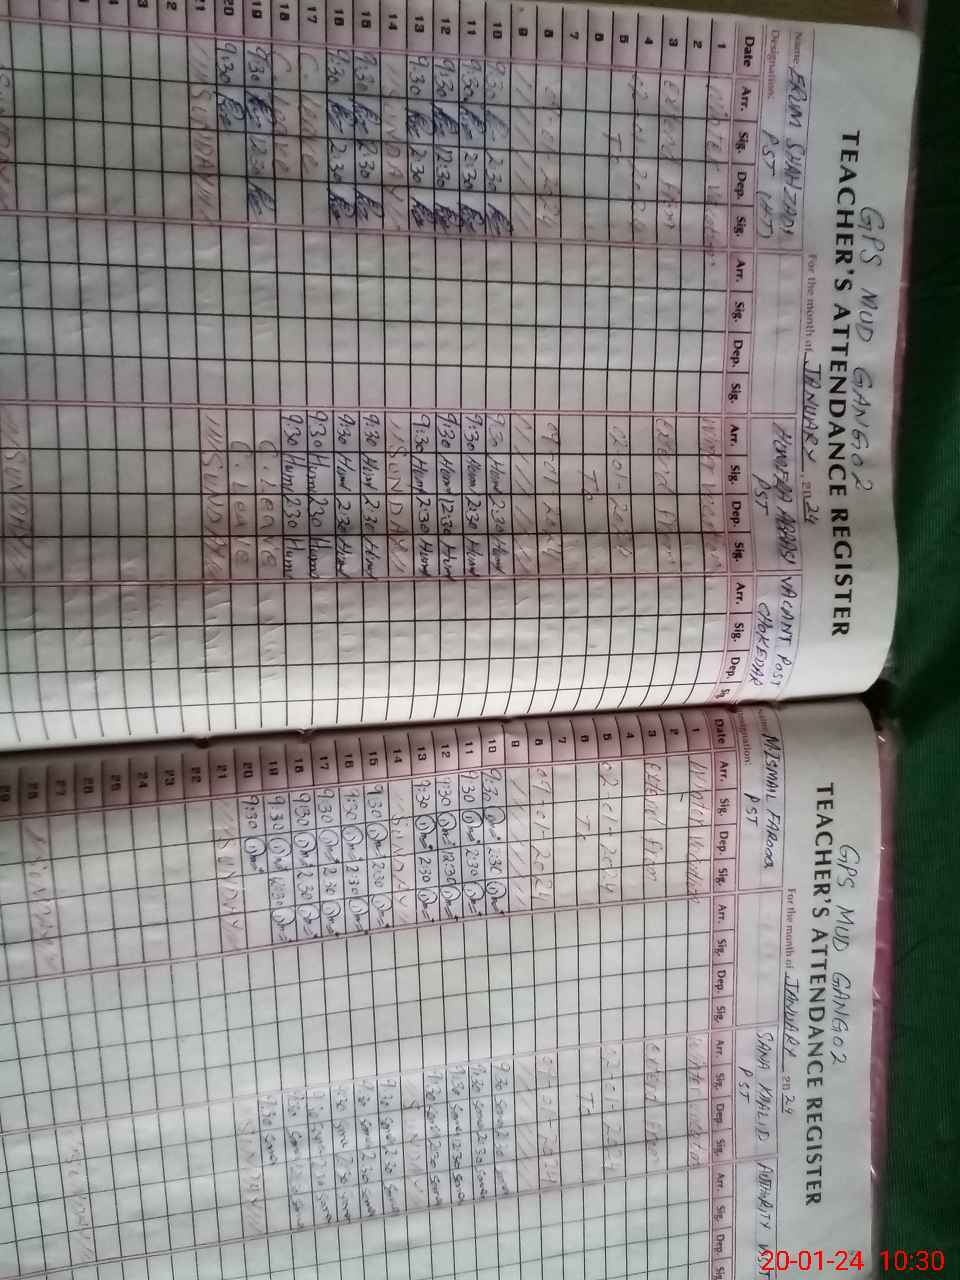 GPS MUD GANGO 2
TEACHER'S ATTENDANCE REGISTER
For the month of JANUARY, 2024
Name: ERUM SHAHZADI
HUMERA ABBASI
VACANT POST
Designation: PST (HT)
PST
CHOKEDAR
Date Arr. Sig. Dep. Sig. Arr. Sig. Dep. Sig. Arr. Sig. Dep. Sig. Arr. Sig. Dep.
1 Winter Vacation Winter Vacation
2
3 Extend From Extend From
4
5 02-01-2024 02-01-2024
6 To To
7
8 09-01-2024 09-01-2024
9
10 9:30 2:30 9:30 Hum 2:30 Hum
11 9:30 2:30 9:30 Hum 2:30 Hum
12 9:30 12:30 9:30 Hum 12:30 Hum
13 9:30 2:30 9:30 Hum 2:30 Hum
14 SUNDAY SUNDAY
15 9:30 2:30 9:30 Hum 2:30 Hum
16 9:30 2:30 9:30 Hum 2:30 Hum
17 C. Leave 9:30 Hum 2:30 Hum
18 C. Leave 9:30 Hum 2:30 Hum
19 9:30 12:30 C. Leave
20 9:30 C. Leave
21 SUNDAY SUNDAY
SUNDAY SUNDAY
GPS MUD GANGO 2
TEACHER'S ATTENDANCE REGISTER
For the month of JANUARY 2024
Name: M. ISMAIL FAROOQ
SANA KHALID
AUTHORITY VISIT
Designation: PST
PST
Date Arr. Sig. Dep. Sig. Arr. Sig. Dep. Sig. Arr. Sig. Dep. Sig. Arr. Sig. Dep. Sig.
1 Winter Vacation Winter Vacation
2
3 Extend From Extend From
4
5 02-01-2024 02-01-2024
6 To To
7
8 09-01-2024 09-01-2024
9
10 9:30 2:30 9:30 Sana 2:30 Sana
11 9:30 2:30 9:30 Sana 2:30 Sana
12 9:30 12:30 9:30 Sana 12:30 Sana
13 9:30 2:30 9:30 Sana 2:30 Sana
14 SUNDAY SUNDAY
15 9:30 2:30 9:30 Sana 2:30 Sana
16 9:30 2:30 9:30 Sana 2:30 Sana
17 9:30 2:30 9:30 Sana 2:30 Sana
18 9:30 2:30 9:30 Sana 2:30 Sana
19 9:30 12:30 9:30 Sana Sana
20 9:30 9:30 Sana
21 SUNDAY SUNDAY
22
23
24
25
26
27
28 SUNDAY SUNDAY
29
20-01-24 10:30